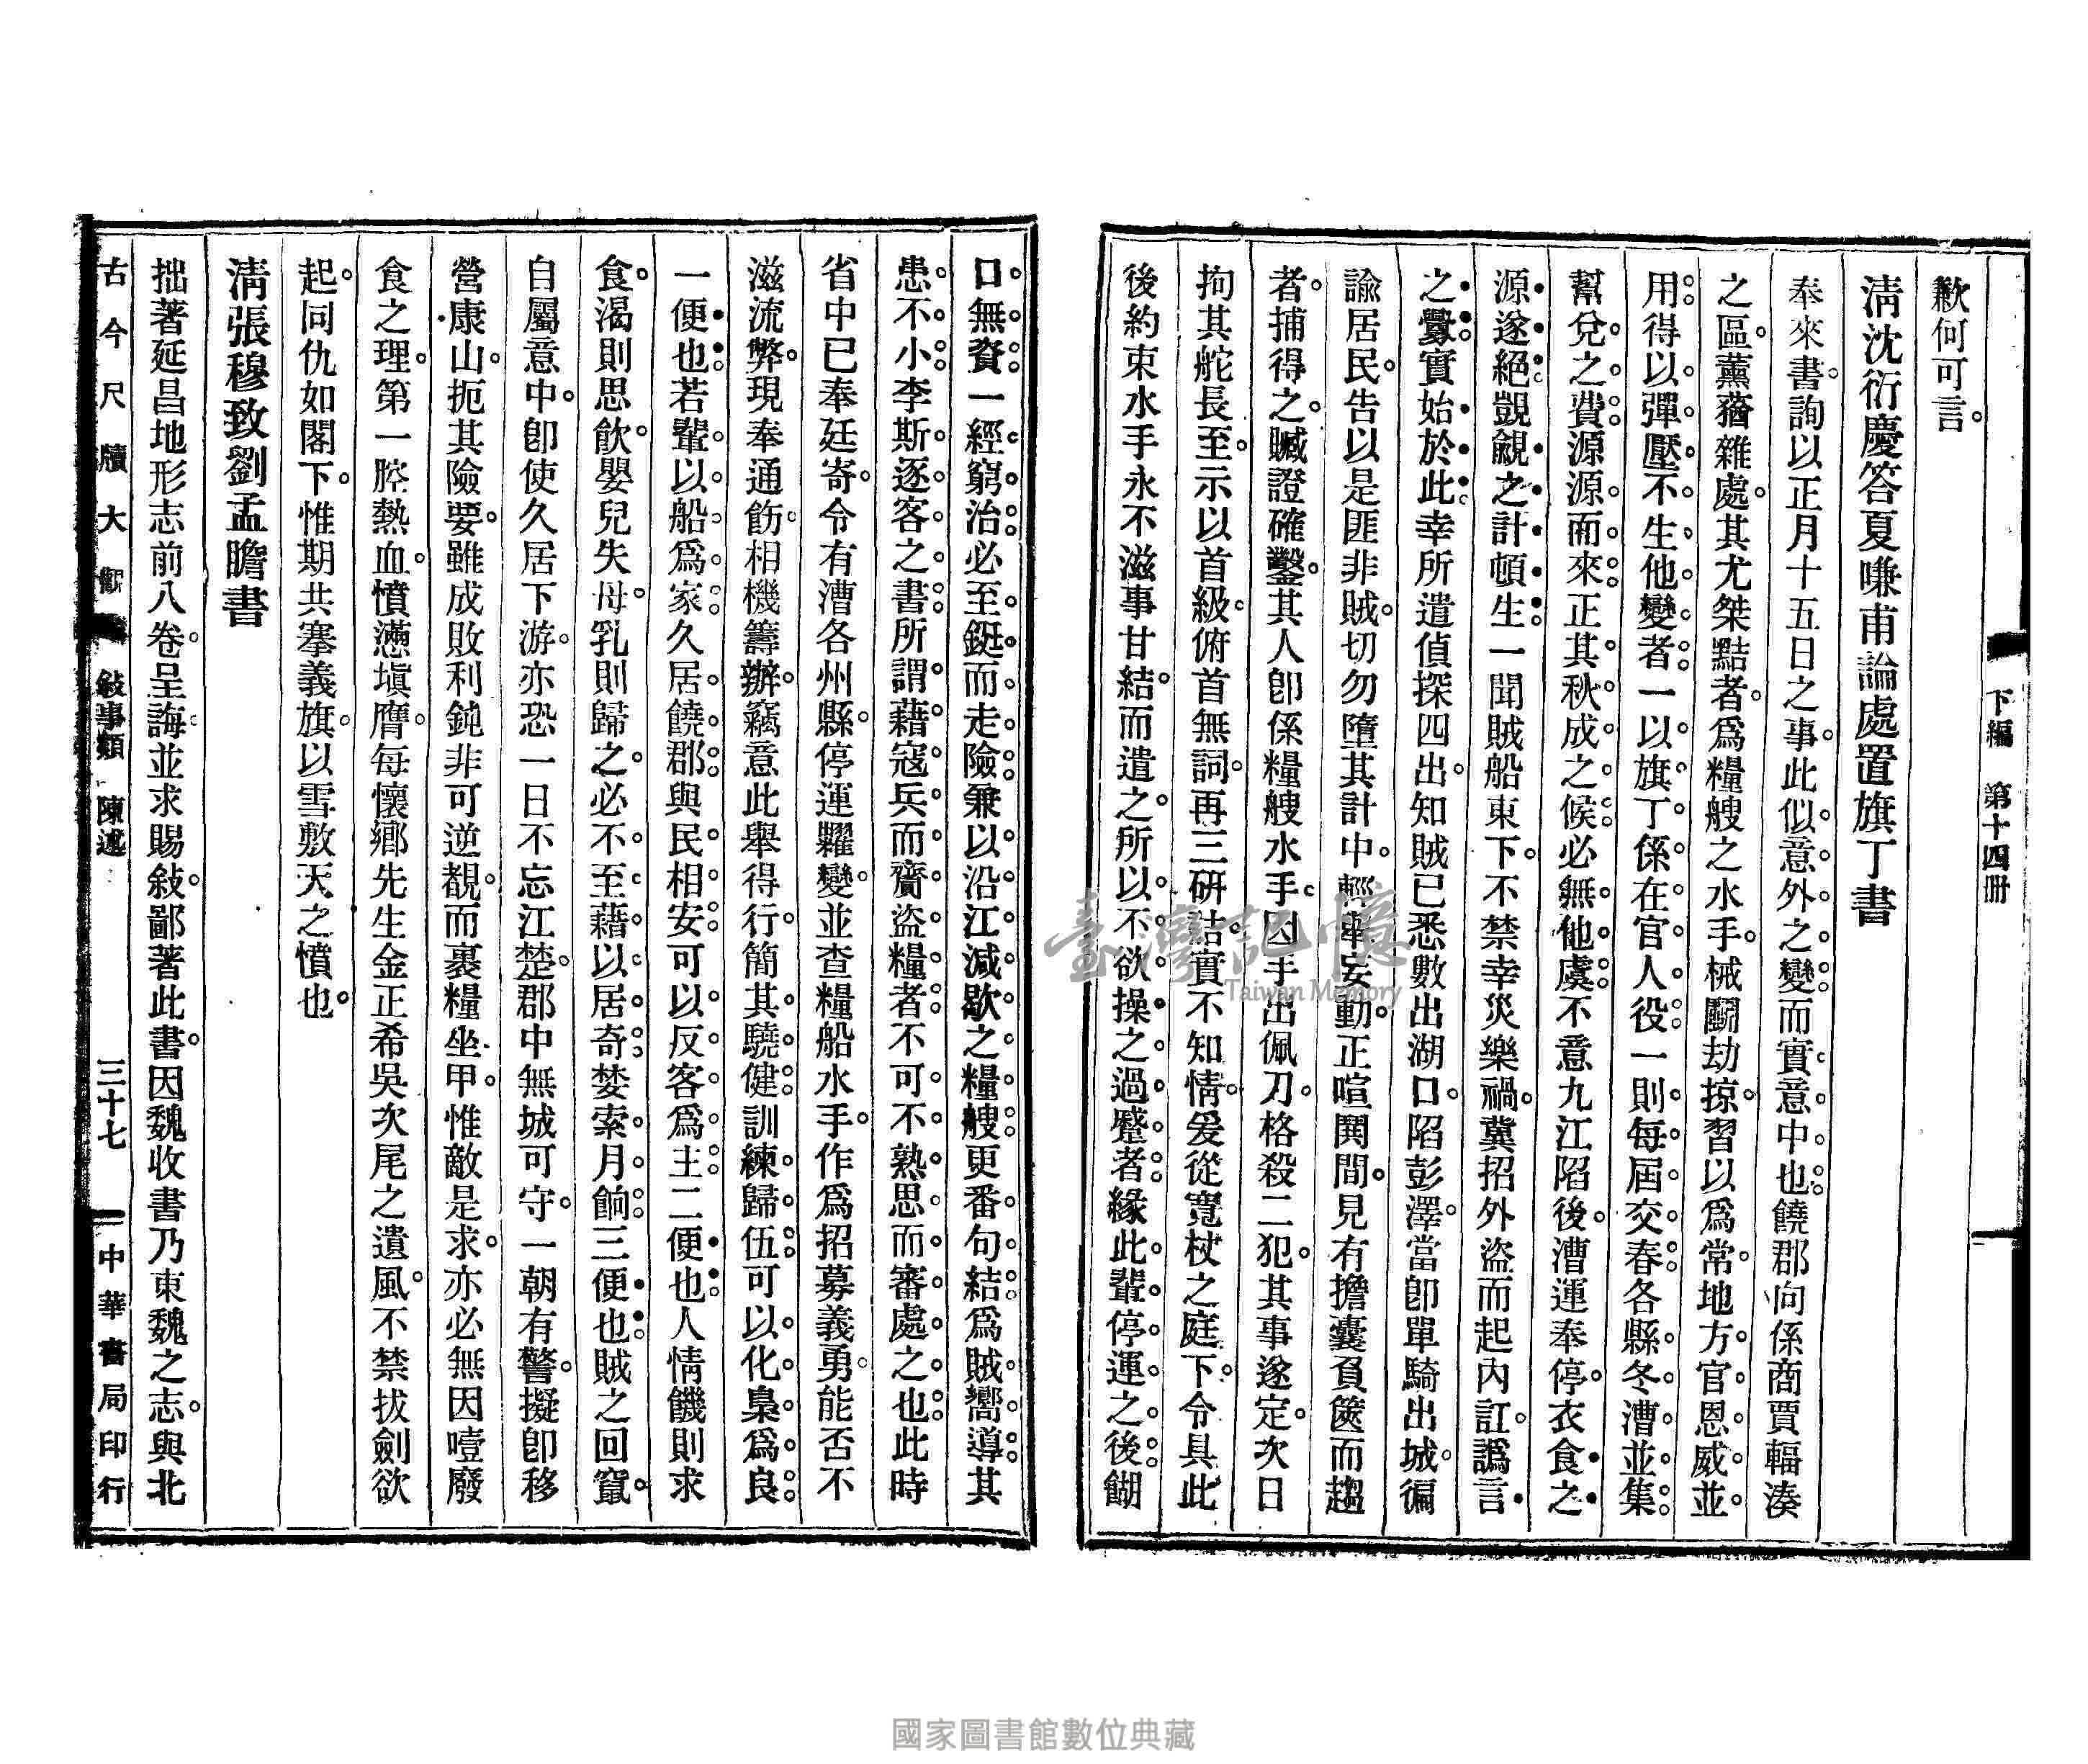 下編　第十四冊
歉何可言。
清沈衍慶答夏嗛甫論處置旗丁書
奉來書。詢以正月十五日之事。此似意外之變。而實意中也。饒郡向係商賈輻湊
之區。薰蕕雜處。其尤桀黠者。爲糧艘之水手。械鬭劫掠。習以爲常。地方官恩威並
用。得以彈壓不生他變者。一以旗丁係在官人役。一則每屆交春。各縣冬漕並集。
幫兌之費。源源而來。正其秋成之候。必無他虞。不意九江陷後。漕運奉停。衣食之
源。遂絕覬覦之計頓生。一聞賊船東下。不禁幸災樂禍。冀招外盜而起內訌。譌言
之釁。實始於此。幸所遣偵探四出。知賊已悉數出湖口。陷彭澤。當卽單騎出城。徧
諭居民。告以是匪非賊。切勿墮其計中。輕舉妄動。正喧鬨間。見有擔囊負篋而趨
者。捕得之。贓證確鑿。其人卽係糧艘水手。因手出佩刀。格殺二犯。其事遂定。次日
拘其舵長至。示以首級。俯首無詞。再三硏詰。實不知情。爰從寬杖之庭下。令具此
後約束水手永不滋事甘結。而遣之。所以不欲操之過蹙者。緣此輩停運之後。餬
口無資。一經窮治。必至鋌而走險。兼以沿江減歇之糧艘。更番句結。爲賊嚮導。其
患不小。李斯逐客之書。所謂藉寇兵而齎盜糧者。不可不熟思而審處之也。此時
省中已奉廷寄。令有漕各州縣。停運糶變。並查糧船水手。作爲招募義勇。能否不
滋流弊。現奉通飭。相機籌辦。竊意此舉得行。簡其驍健。訓練歸伍。可以化梟爲良。
一便也。若輩以船爲家。久居饒郡。與民相安。可以反客爲主。二便也。人情饑則求
食。渴則思飮。嬰兒失母。乳則歸之。必不至藉以居奇。婪索月餉。三便也。賊之回竄。
自屬意中。卽使久居下游。亦恐一日不忘江楚。郡中無城可守。一朝有警。擬卽移
營康山。扼其險要。雖成敗利鈍。非可逆覩。而裹糧坐甲。惟敵是求。亦必無因噎廢
食之理。第一腔熱血。憤懣塡膺。每懷鄉先生金正希吳次尾之遺風。不禁拔劍欲
起。同仇如閣下。惟期共搴義旗。以雪敷天之憤也。
清張穆致劉孟瞻書
拙著延昌地形志前八卷。呈誨。並求賜敍。鄙著此書。因魏收書乃東魏之志。與北
古今尺牘大觀　敍事類　陳述　三十七　中華書局印行
臺灣記憶
Taiwan Memory
國家圖書館數位典藏